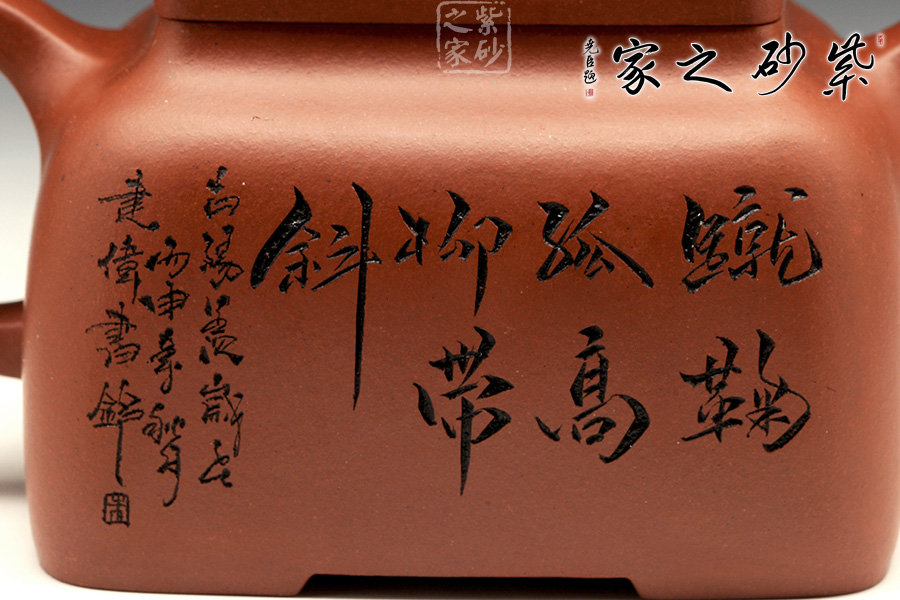 紫砂之家
紫砂之家
蹴鞠
孤高
柳带
斜
古阳羡
丙申年秋月
建伟书铭